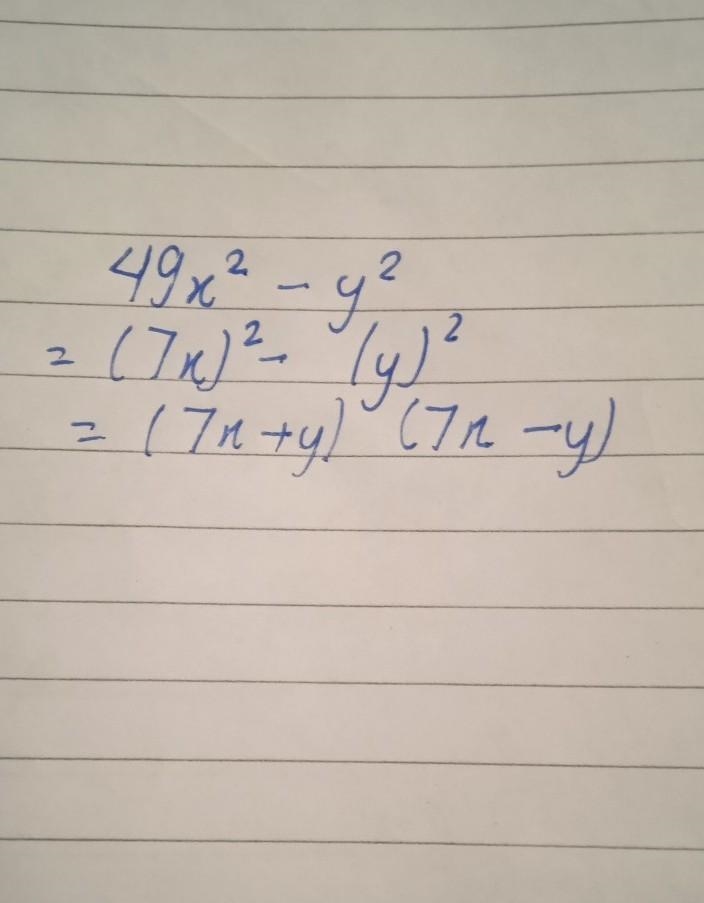 49x² - y²
= (7x)² - (y)²
= (7x+y) (7x-y)